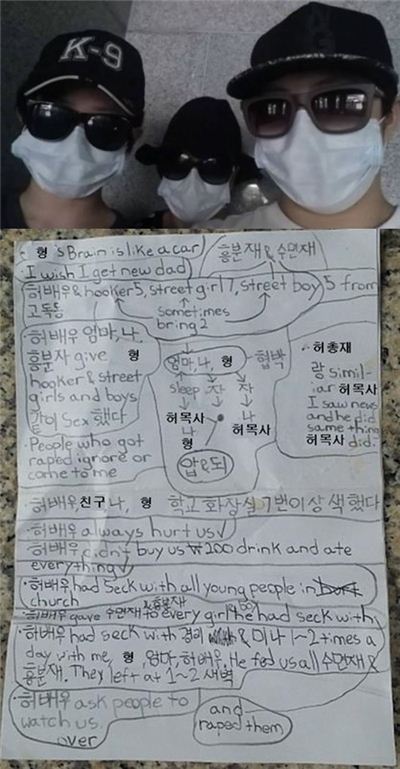 K-9
형's Brain is like a car
흥분재 & 수면재
I wish I get new dad
허배우 & hooker 5, street girl 7, street boy 5 from
고독등
sometimes
bring 2
허배우 엄마, 나,
흥분자 give 형
hooker & street
girls and boys
같이 sex 했다
People who got
raped ignore or
come to me
엄마, 나, 형 협박
sleep 자 자
허목사 나
나 허목사
형
허총재
랑 simil-
iar 허목사
I saw news
and he did
same thing
허목사 did.
허배우 친구 나, 형 학교 화장실 7번이상 색했다
허배우 always hurt us
허배우 didn't buy us ₩200 drink and ate
everything
허배우 had seck with all young people in
church
허배우 gave 수면재 & 흥분재 to every girl he had seck with
허배우 had seck with & 미나 1~2 times a
day with me, 형 엄마, 허배우. He fed us all 수면재 &
흥분재. They left at 1~2 새벽
허배우 ask people to
watch us.
over
and
raped them